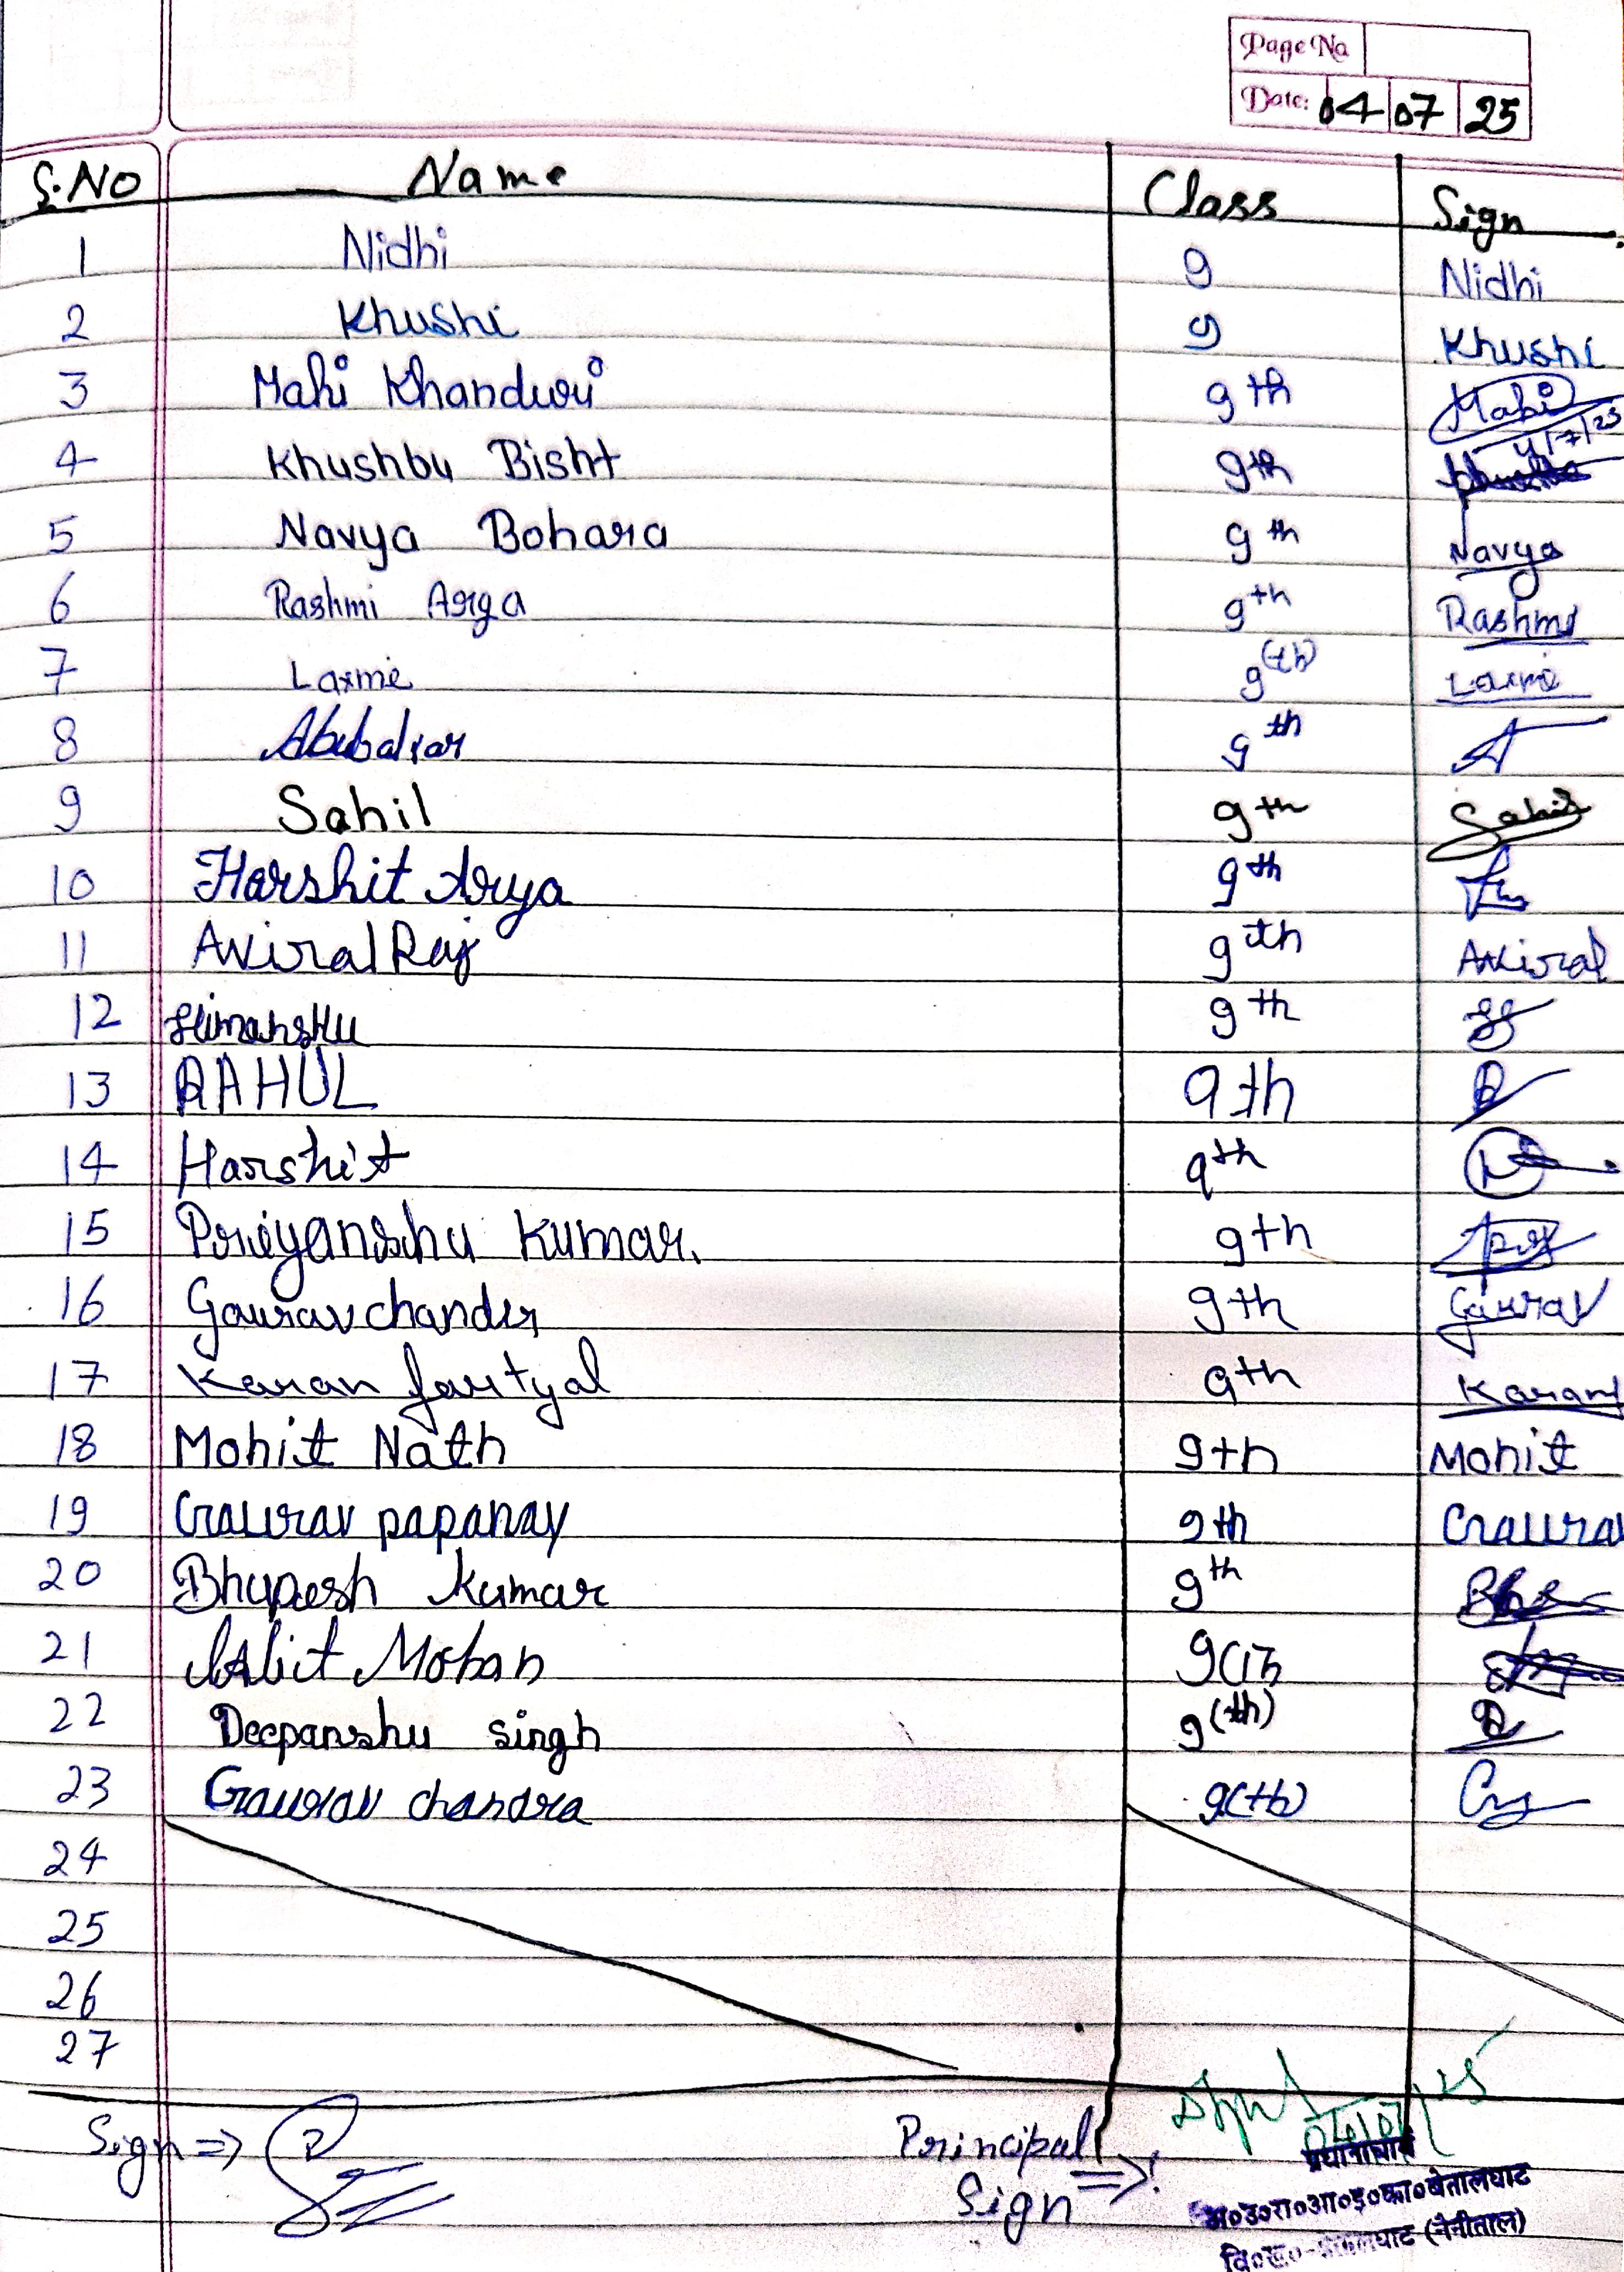 Page No
Date: 04 07 25
S.NO Name Class Sign
1 Nidhi 9 Nidhi
2 Khushi 9 Khushi
3 Mahi Khanduri 9th Mahi
4/7/25
4 Khushbu Bisht 9th
5 Navya Bohara 9th Navya
6 Rashmi Arya 9th Rashmi
7 Laxmi 9(th) Laxmi
8 Abubakar 9th A
9 Sahil 9th Sahil
10 Harshit Arya 9th
11 Aviral Raj 9th Aviral
12 Himanshu 9th
13 RAHUL 9th R
14 Harshit 9th
15 Priyanshu Kumar. 9th
16 Gaurav chander 9th Gaurav
17 Karan fartyal 9th Karan
18 Mohit Nath 9th Mohit
19 Gaurav papanay 9th Gaurav
20 Bhupesh Kumar 9th
21 Lalit Mohan 9(th
22 Deepanshu singh 9(th) D
23 Gaurav chandra 9(th)
24
25
26
27
Sign => Principal
Sign => 04/07/25
प्रधानाचार्य
अ०उ०रा०आ०इ०का०बेतालघाट
वि०ख०-बेतालघाट (नैनीताल)